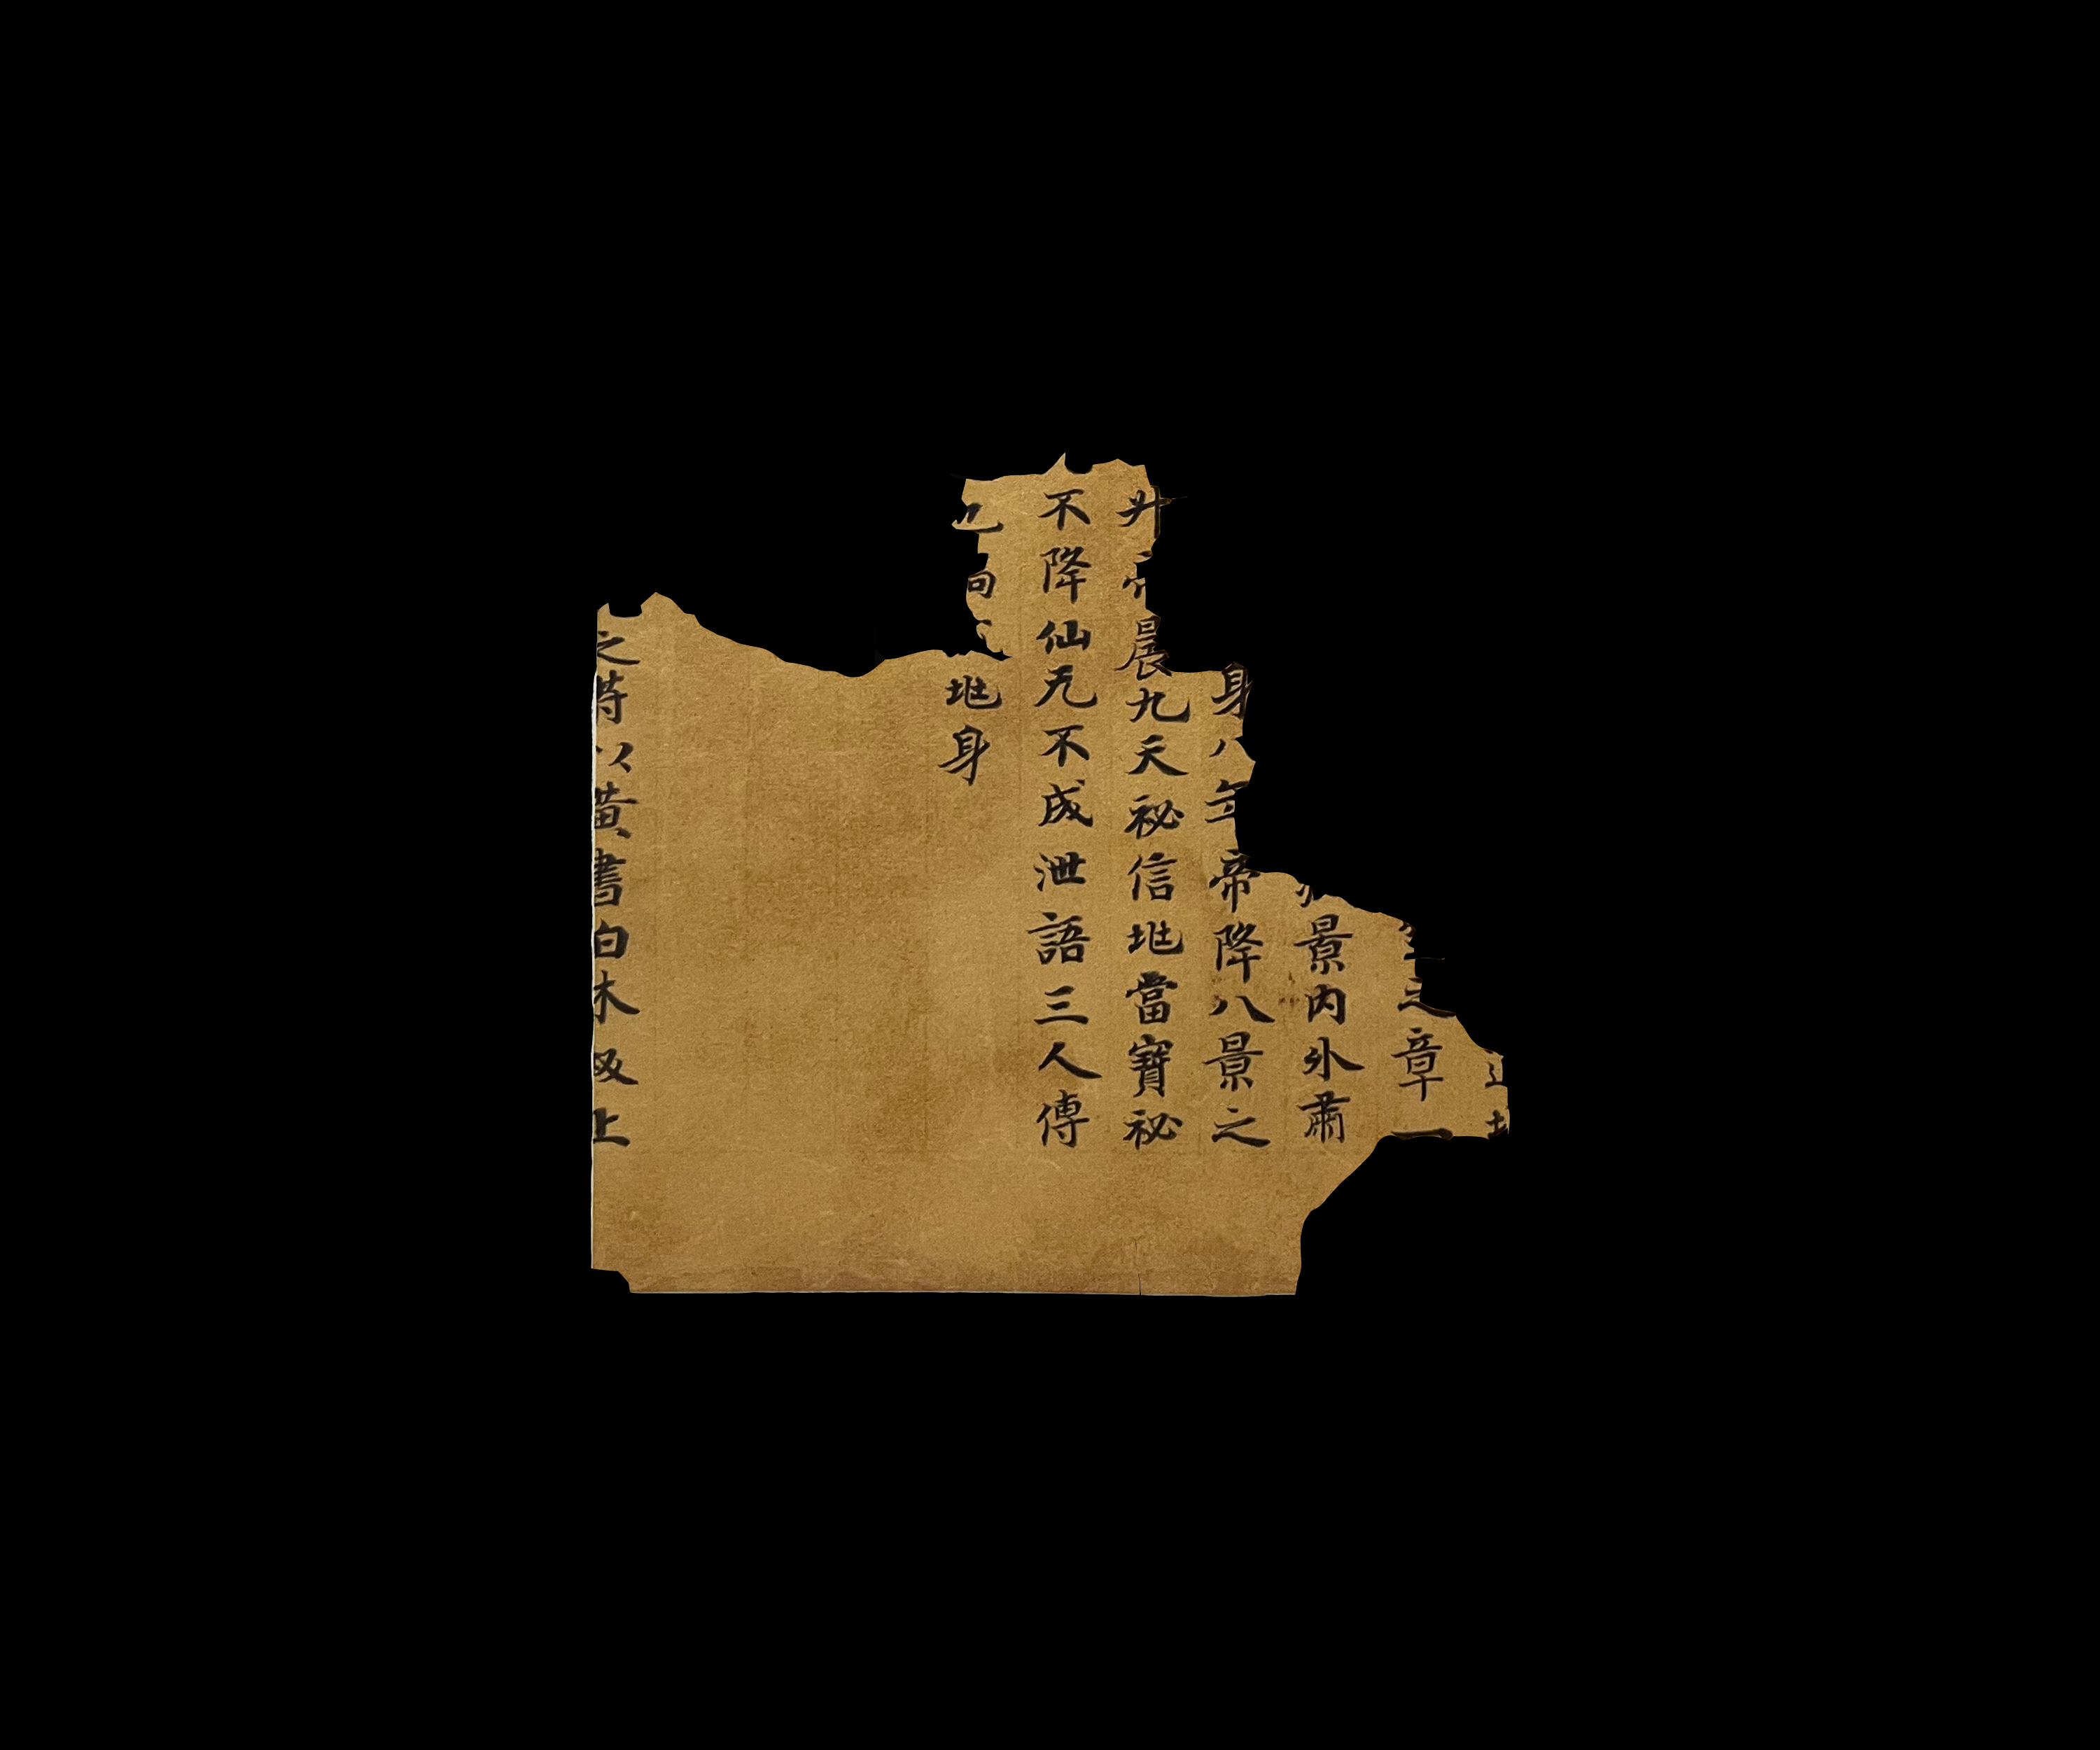 之章一
景内外肅
身八 帝降八景之
升 晨九天祕信地當寳祕
不降仙无不成泄語三人傳
地身
之符以黄書白木板上